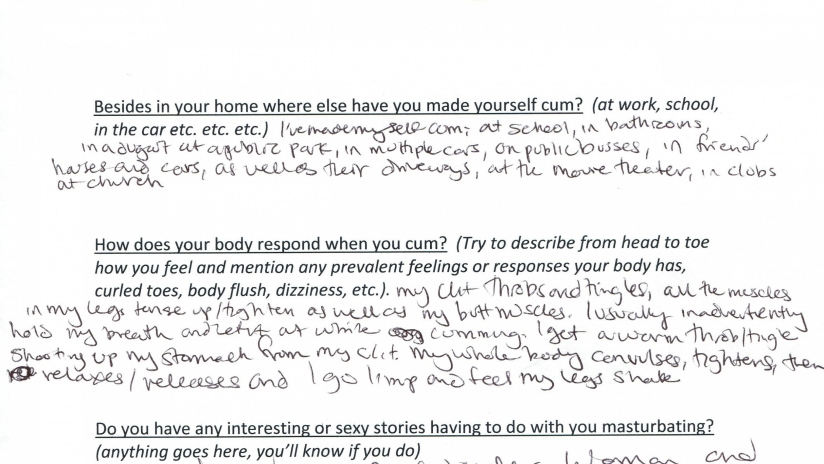 Besides in your home where else have you made yourself cum? (at work, school,
in the car etc. etc. etc.) I've made myself cum; at school, in bathrooms,
in a at a public park, in multiple cars, on public busses, in friends'
houses and cars, as well as their driveways, at the movie theater, in clubs
at church
How does your body respond when you cum? (Try to describe from head to toe
how you feel and mention any prevalent feelings or responses your body has,
curled toes, body flush, dizziness, etc.). my clit throbs and tingles, all the muscles
in my legs tense up/tighten as well as my butt muscles. I usually inadvertently
hold my breath and let it out while cumming. I get a warm throb/tingle
shooting up my stomach from my clit. my whole body convulses, tightens, then
relaxes/releases and I go limp and feel my legs shake
Do you have any interesting or sexy stories having to do with you masturbating?
(anything goes here, you'll know if you do)
woman and